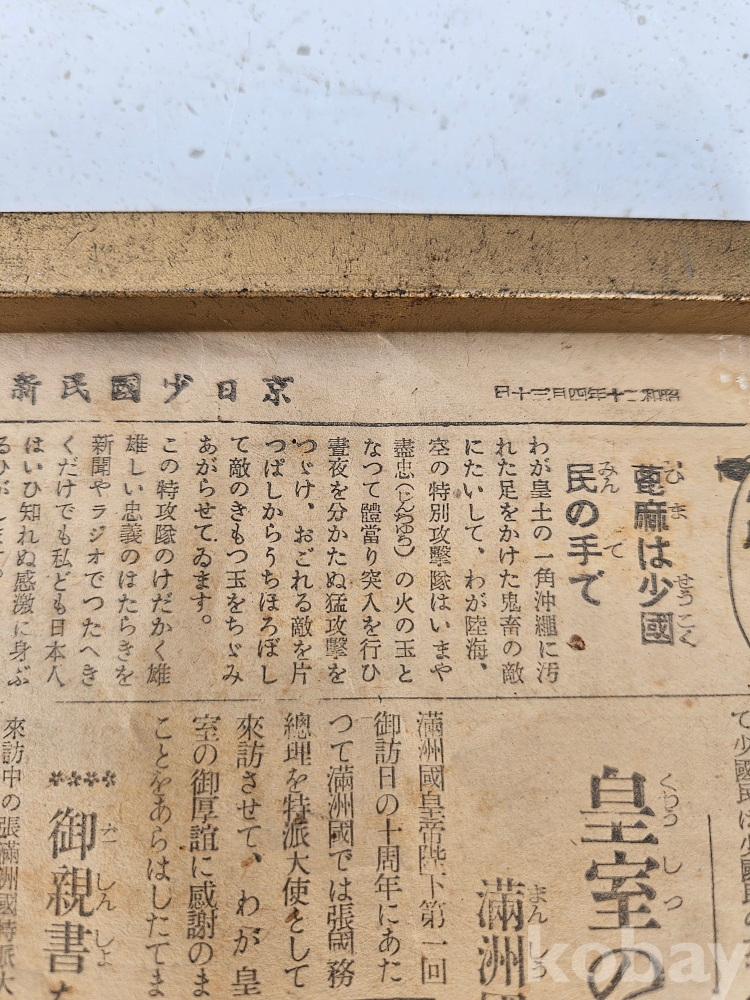 昭和二十年四月三十日
京日少國民新
蓖麻は少國
ひま せうこく
民の手で
みん て
わが皇土の一角沖繩に汚
れた足をかけた鬼畜の敵
にたいして、わが陸海、
空の特別攻擊隊はいまや
盡忠(じんちゆう)の火の玉と
なつて體當り突入を行ひ
晝夜を分かたぬ猛攻擊を
つゞけ、おごれる敵を片
つぱしからうちほろぼし
て敵のきもつ玉をちゞみ
あがらせてゐます。
この特攻隊のけだかく雄
雄しい忠義のはたらきを
新聞やラジオでつたへき
くだけでも私ども日本人
はいひ知れぬ感激に身ぶ
るひがします。
皇室の
くわうしつ
滿洲國
まんしう
滿洲國皇帝陛下第一回
御訪日の十周年にあた
つて滿洲國では張國務
總理を特派大使として
來訪させて、わが皇
室の御厚誼に感謝のま
ことをあらはしたてま
御親書
ごしんしよ
來訪中の張滿洲國特派大
kobay